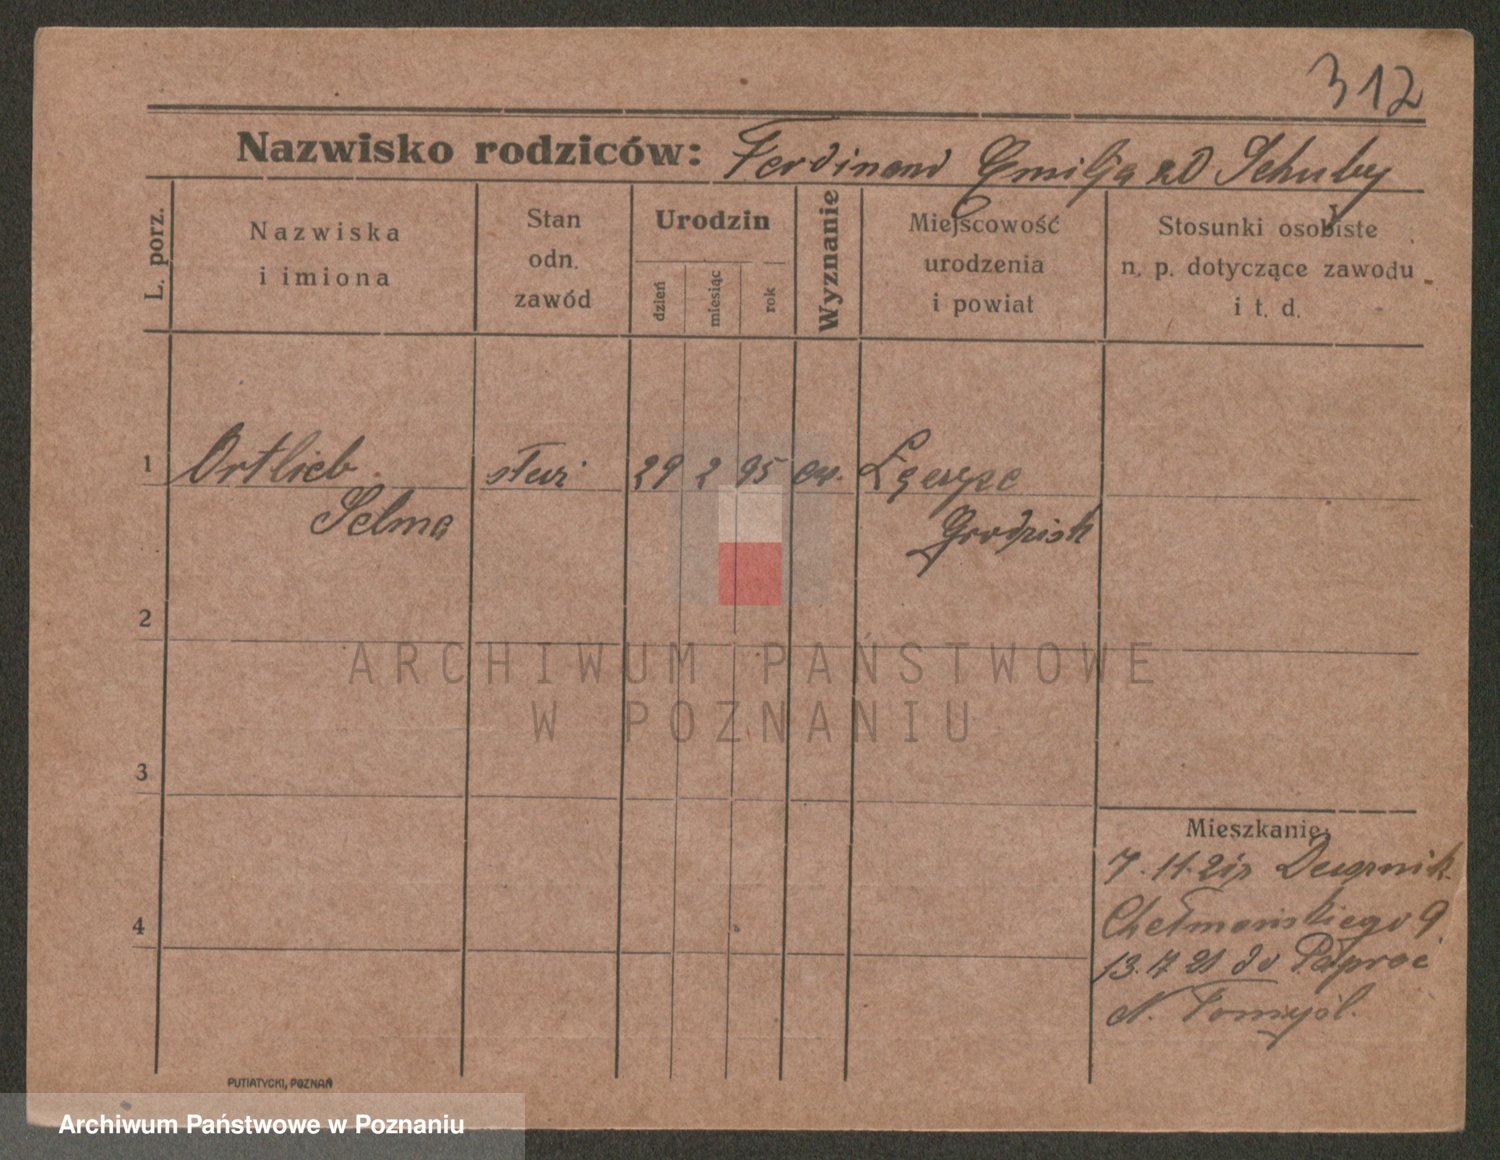 312
Nazwisko rodziców: Ferdinand Emilja zd Schuby
L. porz.
Nazwiska
i imiona
Stan
odn.
zawód
Urodzin
dzień
miesiąc
rok
Wyznanie
Miejscowość
urodzenia
i powiat
Stosunki osobiste
n. p. dotyczące zawodu
i t. d.
1 Ortlieb 29 2 95 ew.
Selma Grodzisk
2
ARCHIWUM PAŃSTWOWE
W POZNANIU
3
Mieszkanie:
7. 11. 20
4
Chełmońskiego 9
13. 7 21 do Paproć
N. Tomyśl.
PUTIATYCKI, POZNAŃ
Archiwum Państwowe w Poznaniu